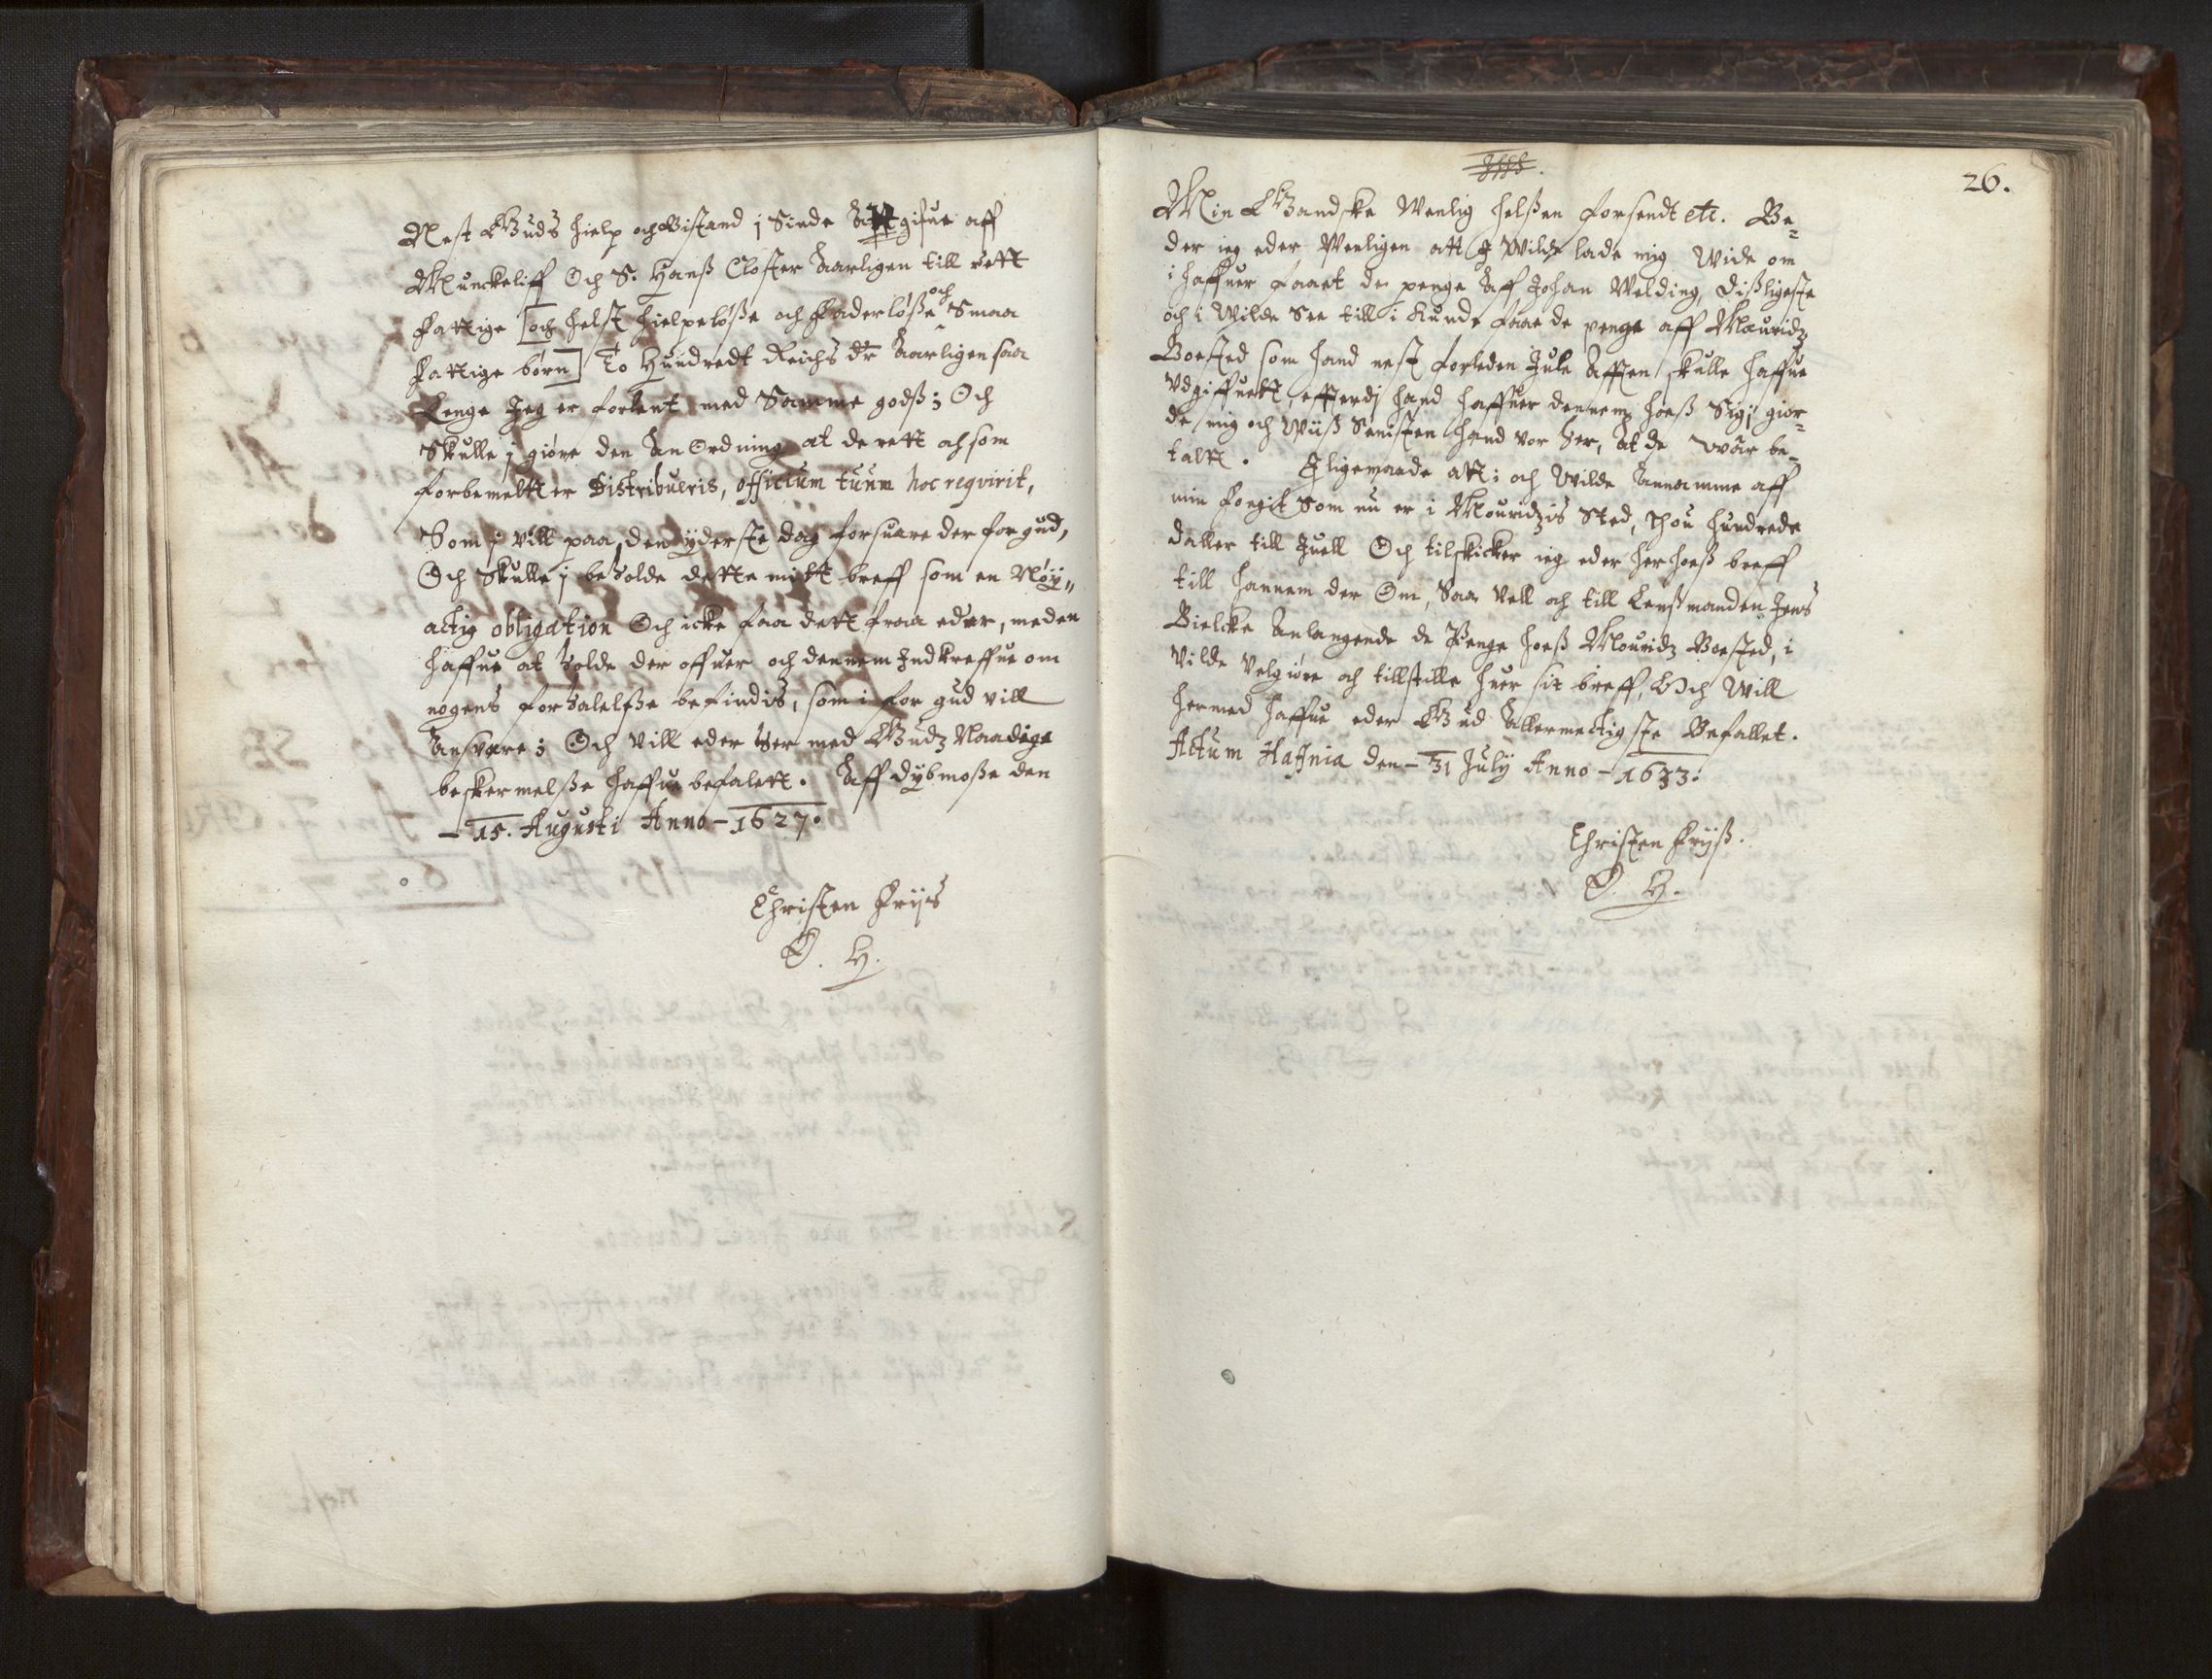 Nest Guds hielp och Bistand j Sinde att gifue aff
Munckeliff Och S. Hanß Closter Aarligen till rett
Fattige [och helst hielpeløße och Faderløße och Smaa
fattige børn] To Hundredt Reichs dr Aarligen saa
Lenge Jeg er forlent med Samme godß; Och
Skulle j giøre den An Ordning at de rett och som
forbemeltt er Distribueris, officium tuum hoc reqvirit,
Som j vill paa den yderste dag forsuare der for gud,
Och Skulle j beholde dette mitt breff som en Nøÿ„
actig obligation Och icke faa dett fraa eder, meden
haffue at holde der offuer och dennem Indkreffue om
nogens forhalelße befindis, som i for gud vill
Ansvare; Och vill eder her med Gudz Naadige
beskermelße haffue befalett. Aff Dybmoße den
– 15. Augusti Anno – 1627.
Christen Friis
E. H.
26.
Min Gandske Venlig helßen forsendt etc. Be=
der ieg eder Venligen att I Wilde lade mig Wide om
i haffuer faaet de penge Aff Johan Welding, dißligeste
och i Wilde See till i kunde faae de penge aff Mauridz
Bosted som hand nest forleden Jule Afften skulle haffue
Vdgiffuett, efftterdj hand haffuer dennem hoeß Sig; gior=
de mig och Wiiß Senisten hand vor her, at de waar be=
talt. Iligemaade att i och Wilde Annamme aff
min fogit Som nu er i Mouridzis Sted, thou hundrede
daller till Juell Och tilskicker ieg eder her hoeß breff
till hannem der Om, Saa Vell och till Lenßmanden Jens
Bielcke Anlangende de Penge hoeß Mouridz Bosted, i
Vilde Velgiøre och tillstille huer sit breff, Och Will
hermed haffue eder Gud Allermectigste Befallet.
Actum Hafnia den – 31 July Anno – 1633.
Christen Frijß.
E. H.